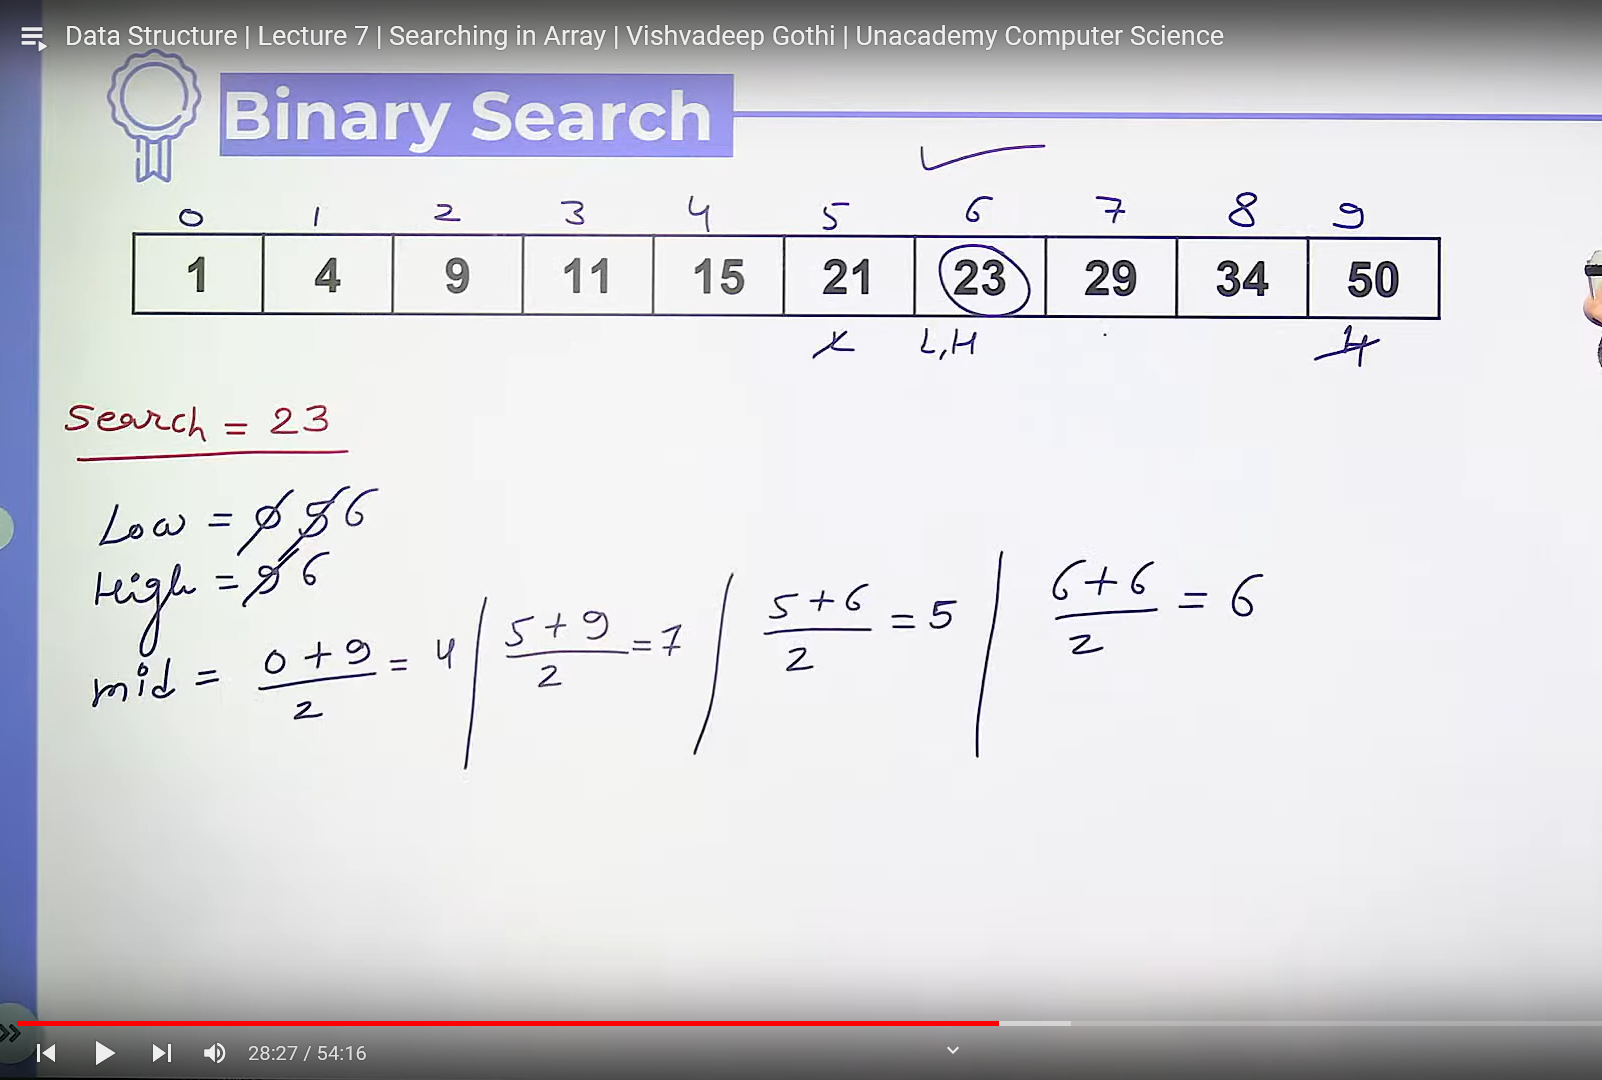 Data Structure | Lecture 7 | Searching in Array | Vishvadeep Gothi | Unacademy Computer Science
Binary Search
0 1 2 3 4 5 6 7 8 9
1 4 9 11 15 21 23 29 34 50
L L,H H
Search = 23
Low = 0 5 6
High = 9 6
mid = 0+9/2 = 4 | 5+9/2 = 7 | 5+6/2 = 5 | 6+6/2 = 6
28:27 / 54:16